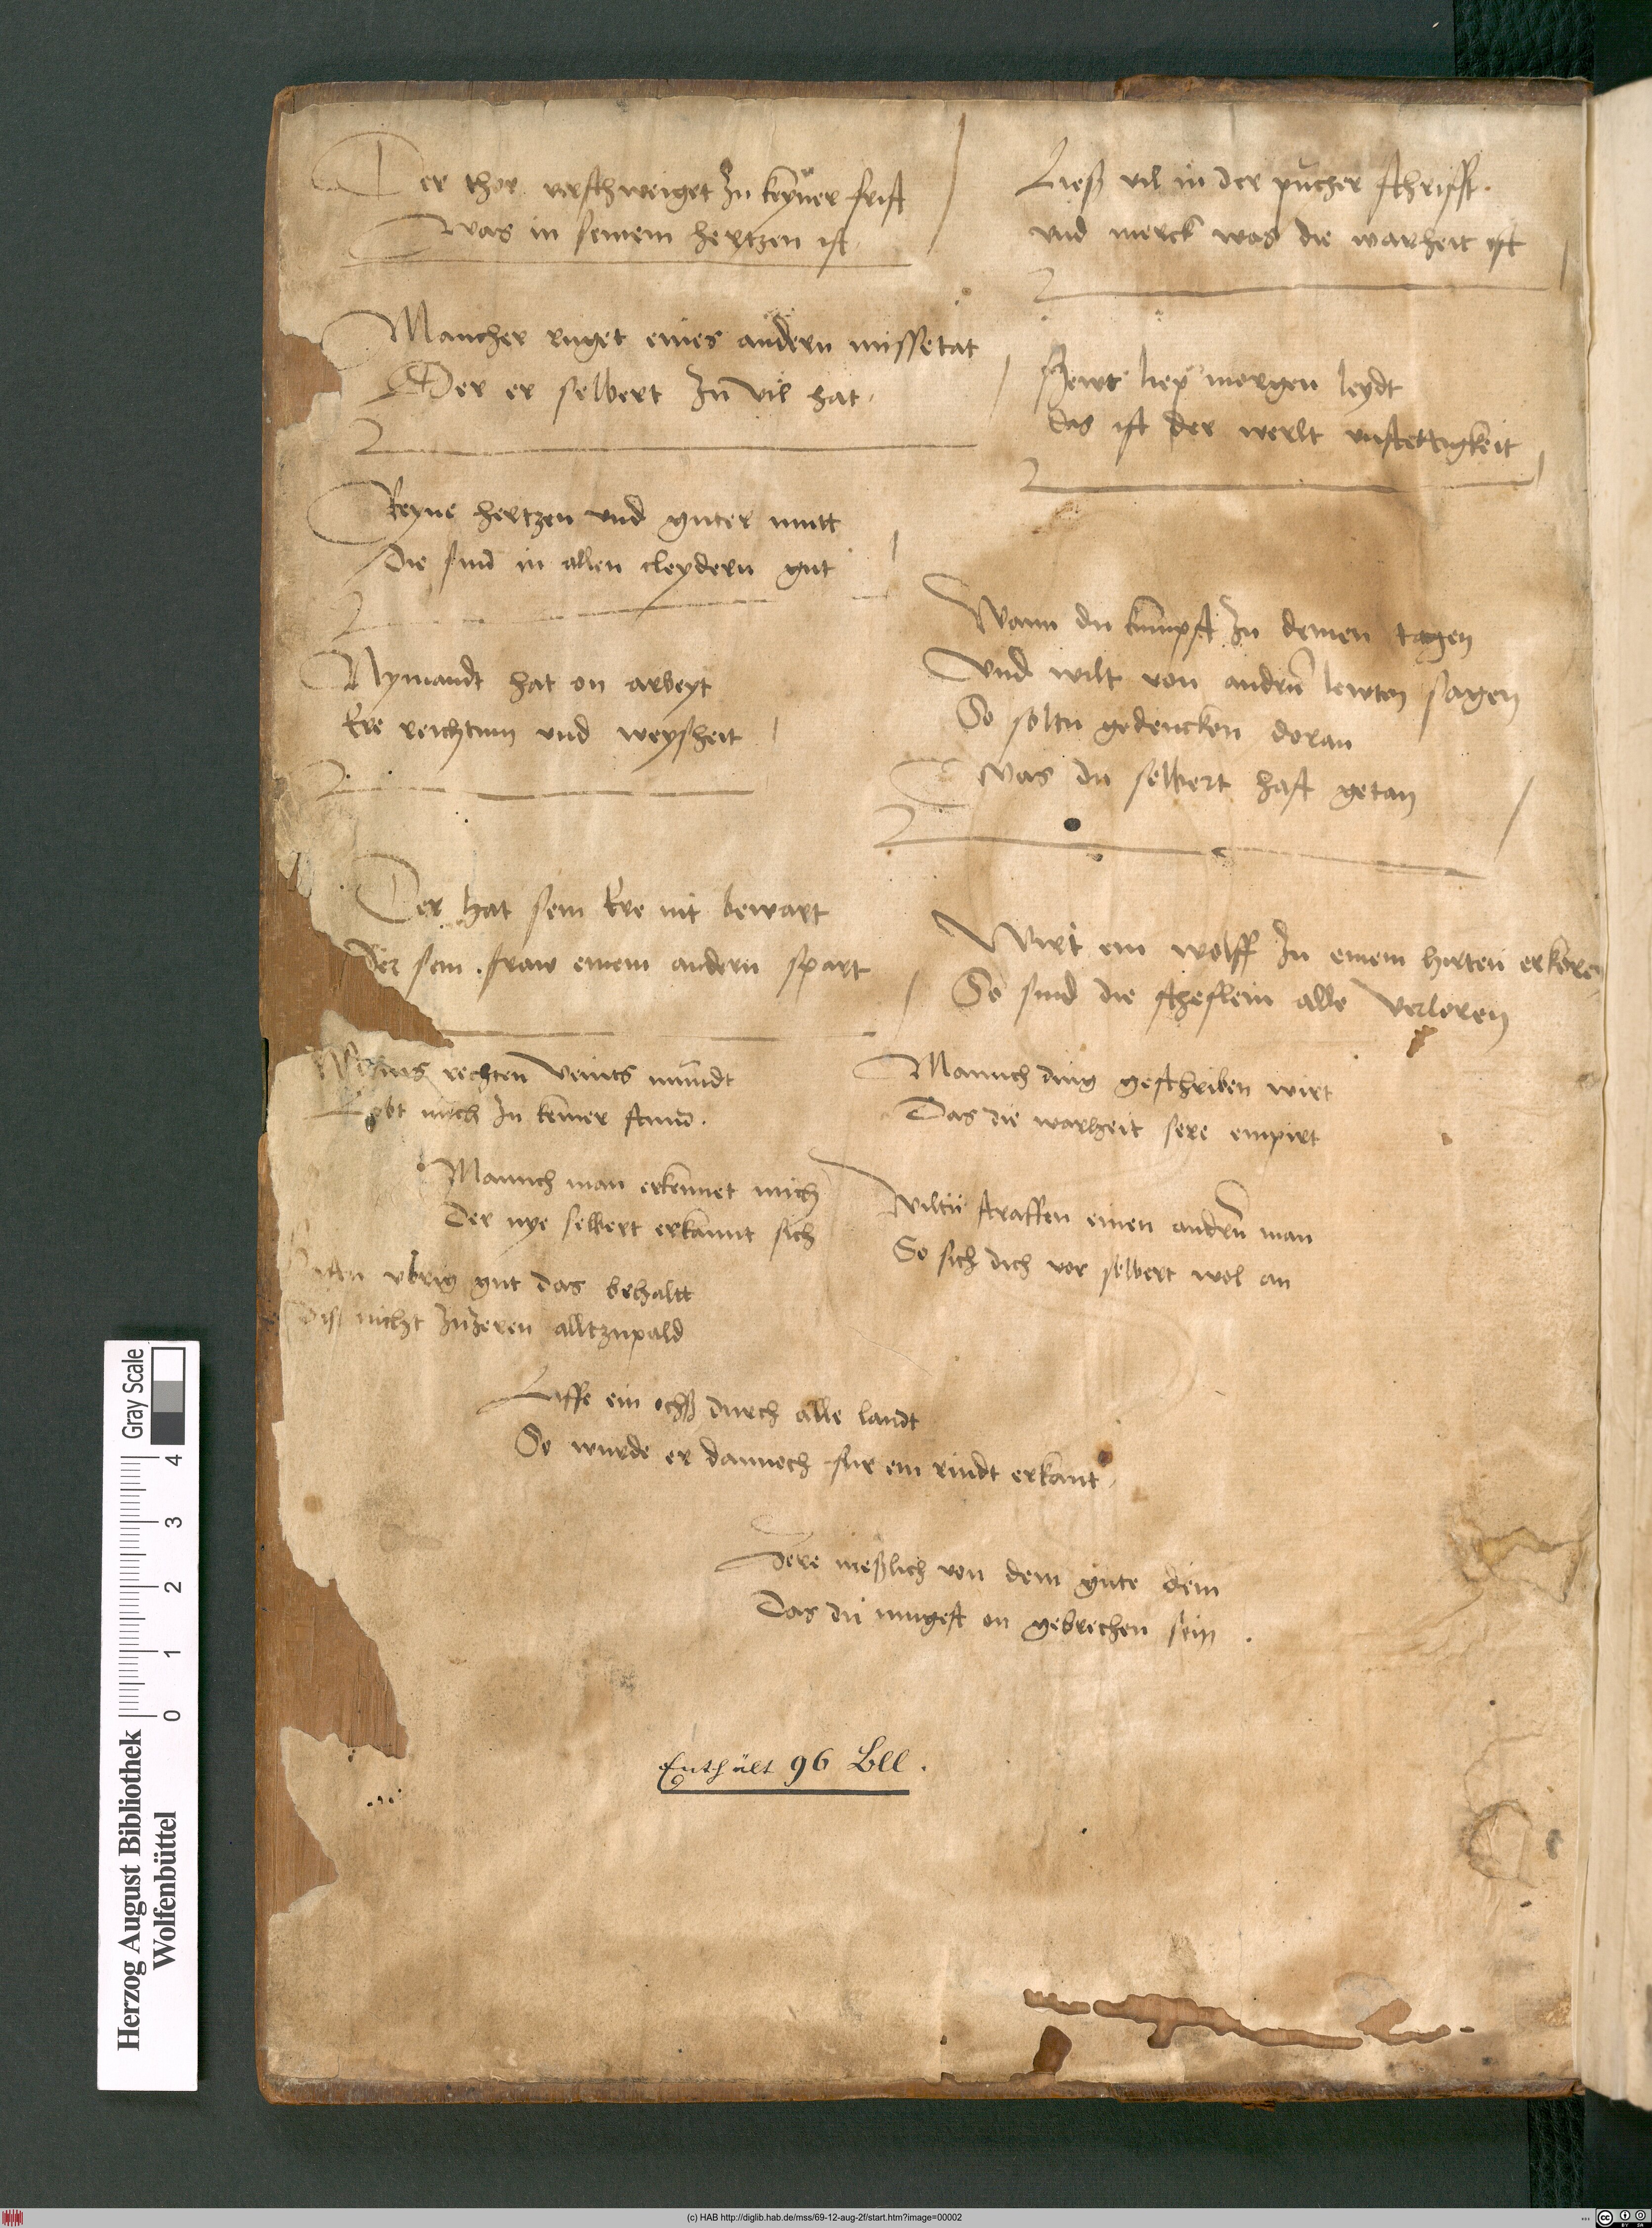 Der thor verschweiget Zu keyner frist
Was in seinem hertzen ist
Mancher ruget eines andern missetat
Der er selbert Zu vil hat
Reyne hertzen vnd guter mutt
Die sind in allen cleydern gut
Nymandt hat on arbeyt
Ere reichtum vnd weysheit
Der hat sein Ere nit bewart
Der sein fraw einem andern spart
rechten veints mundt
Lobt mich Zu keiner stund.
Manich man erkennet mich
Der nye selbert erkannt sich
vbrig gut das behaltt
nicht Zuzeren alltzupald
Ließ vil in der pucher schrifft.
vnd merck was die warheit ist
Hewt liep morgen leydt
das ist der werlt vnstettigkeit
Wann du kumpst Zu deinen tagen
Vnd wilt von andern lewten sagen
So soltu gedencken doran
Was du selbert hast getan
Wirt ein wolff Zu einem hirten erkoren
So sind die scheflein alle verloren
Manich ding geschriben wirt
Das die warheit sere empirt
Wiltu straffen einen andern man
So sich dich vor selbert wol an
Liffe ein ochß durch alle landt
So wurde er dannoch fur ein rindt erkant
Zere meßlich von dem gute dein
Das du mugest on gebrechen sein.
Enthält 96 Bll.
Herzog August Bibliothek
Wolfenbüttel
0 1 2 3 4
Gray Scale
(c) HAB http://diglib.hab.de/mss/69-12-aug-2f/start.htm?image=00002